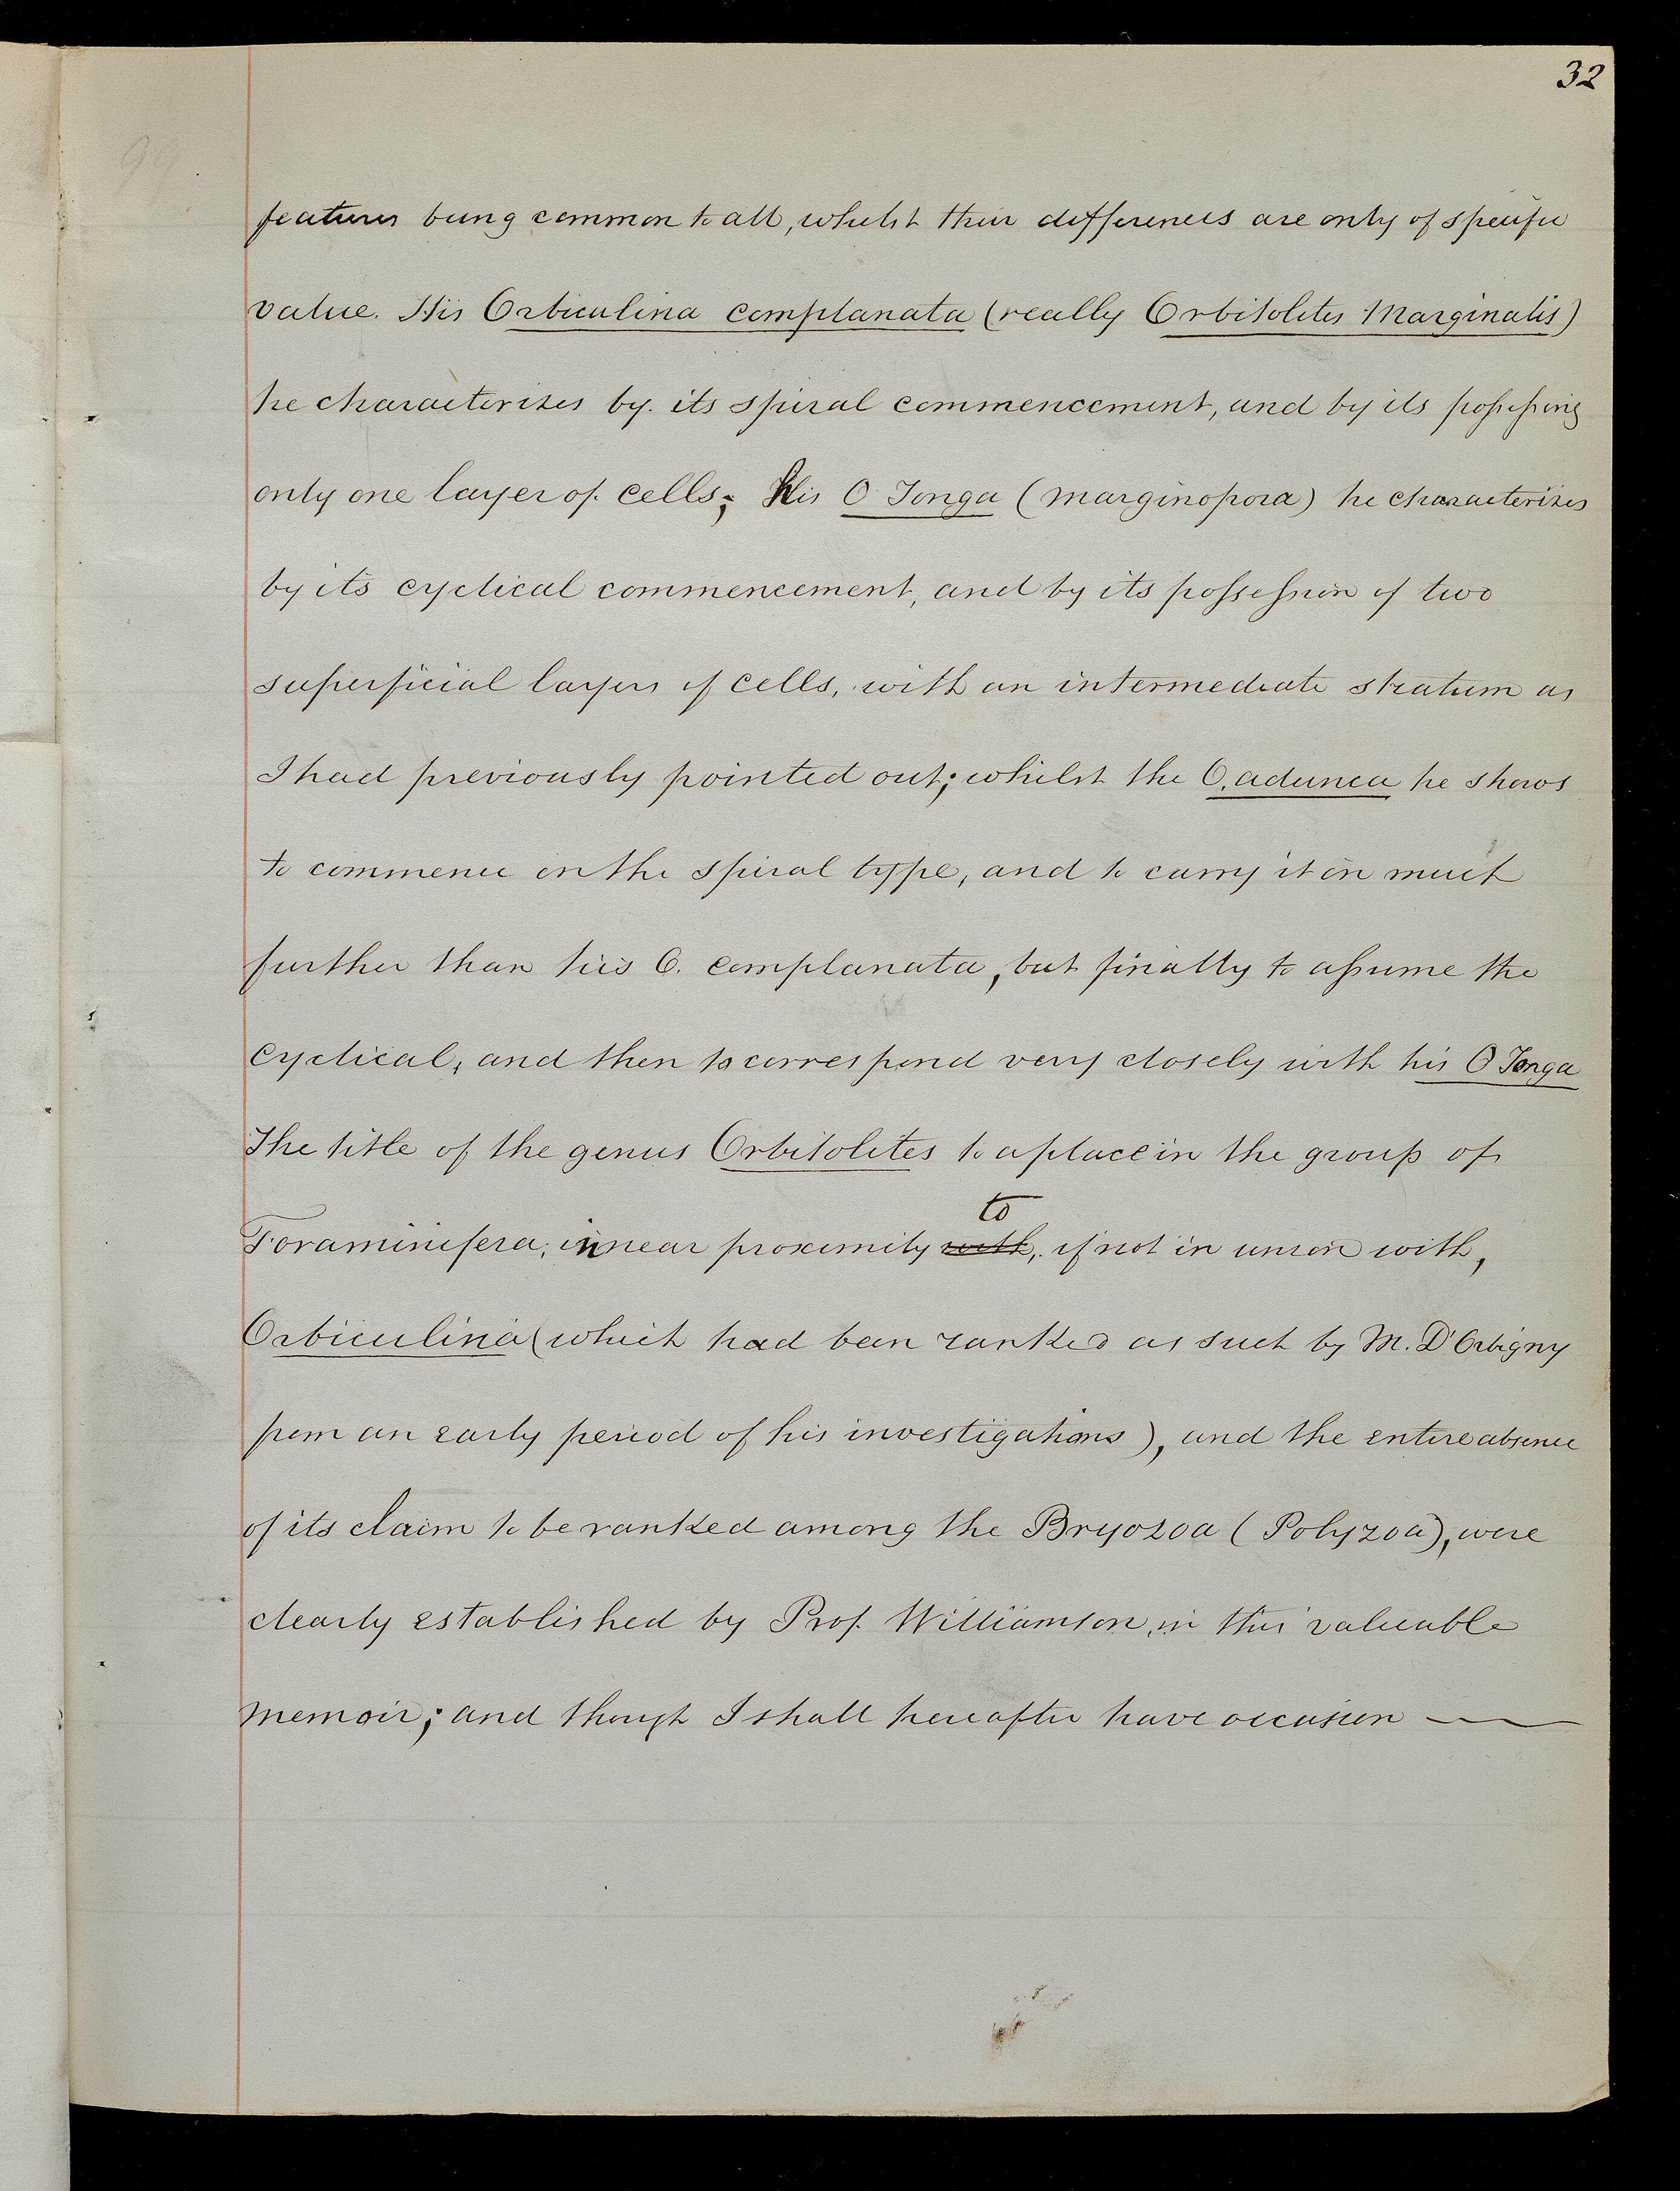 32
99
features being common to all, whilst their differences are only of specific
value. His Orbiculina complanata (really Orbitolites Marginalis)
he characterizes by its spiral commencement, and by its possessing
only one layer of cells; his O Tonga (marginopora) he characterizes
by its cyclical commencement, and by its possession of two
superficial layers of cells, with an intermediate stratum as
I had previously pointed out; whilst the O. adunca he shows
to commence on the spiral type, and to carry it on much
further than his O. complanata, but finally to assume the
cyclical, and then to correspond very closely with his O Tonga
The title of the genus Orbitolites to a place in the group of
to
Foraminifera, in near proximity with, if not in union with,
Orbiculina (which had been ranked as such by M. D'Orbigny
from an early period of his investigations), and the entire absence
of its claim to be ranked among the Bryozoa (Polyzoa), were
clearly established by Prof. Williamson, in this valuable
memoir; and though I shall hereafter have occasion